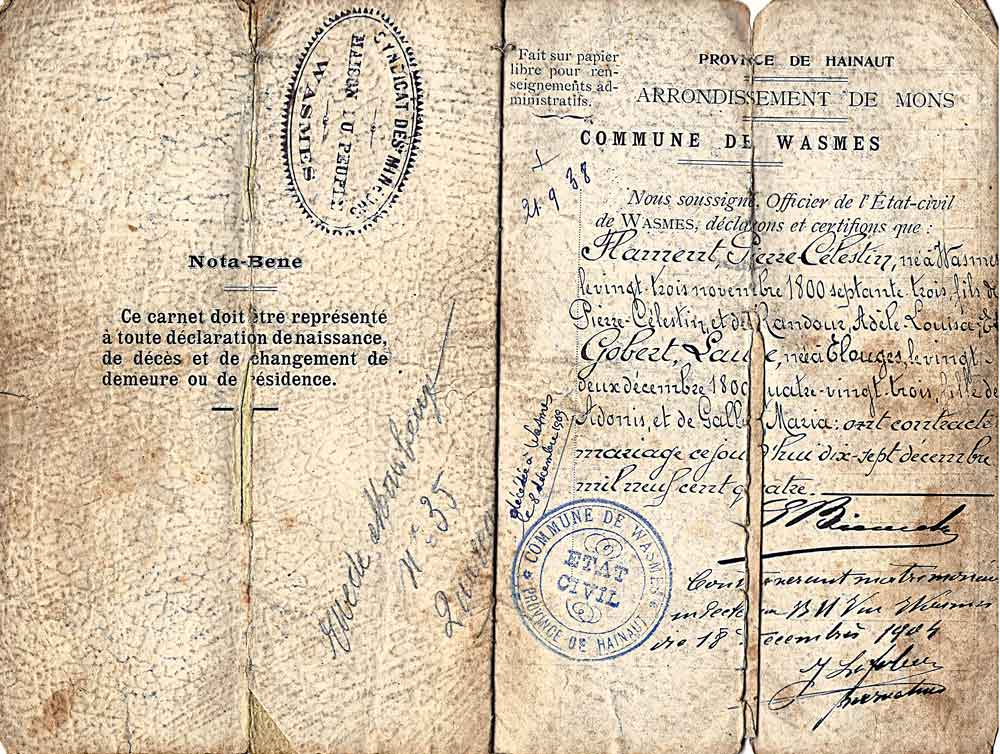 SYNDICAT DES MINEURS
MAISON DU PEUPLE
WASMES
Nota-Bene
Ce carnet doit être représenté
à toute déclaration de naissance,
de décès et de changement de
demeure ou de résidence.
Rue de Maubeuge
N° 35
Fait sur papier
libre pour ren-
seignements ad-
ministratifs.
PROVINCE DE HAINAUT
ARRONDISSEMENT DE MONS
COMMUNE DE WASMES
21 9 38
Nous soussigné, Officier de l'État-civil
de WASMES, déclarons et certifions que :
Flament, Pierre-Célestin, né à Wasmes
le vingt-trois novembre 1800 septante-trois, fils de
Pierre-Célestin, et de Randour, Adèle-Louisa-Et
Gobert, Laure, née à Elouges, le vingt-
deux décembre 1800 quatre-vingt trois, fille de
Adonis, et de Gallez Maria : ont contracté
mariage ce jourd'hui dix-sept décembre
mil neuf cent quatre.
décédée à Wasmes
le 8 décembre 1969
COMMUNE DE WASMES
ETAT
CIVIL
PROVINCE DE HAINAUT
Wasmes
18 décembre 1904